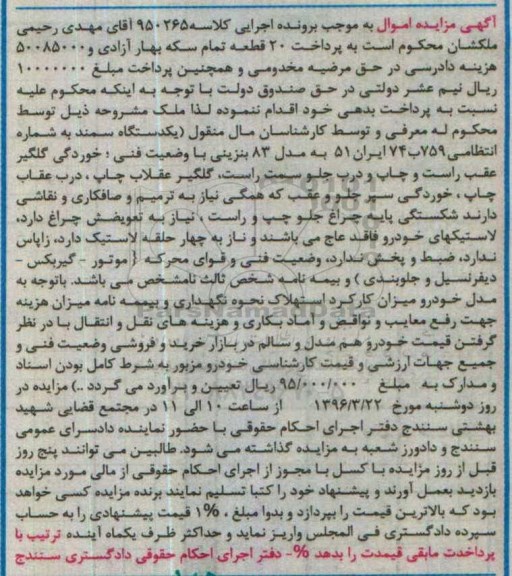 آگهی مزایده اموال به موجب پرونده اجرایی کلاسه ۹۵۰۲۶۵ آقای مهدی رحیمی
ملکشان محکوم است به پرداخت ۲۰ قطعه تمام سکه بهار آزادی و ۵۰۰۸۵۰۰۰
هزینه دادرسی در حق مرضیه مخدومی و همچنین پرداخت مبلغ ۱۰۰۰۰۰۰۰
ریال نیم عشر دولتی در حق صندوق دولت با توجه به اینکه محکوم علیه
نسبت به پرداخت بدهی خود اقدام ننموده لذا ملک مشروحه ذیل توسط
محکوم له معرفی و توسط کارشناسان مال منقول (یکدستگاه سمند به شماره
انتظامی ۷۵۹ب۷۴ ایران ۵۱ به مدل ۸۳ بنزینی با وضعیت فنی ؛ خوردگی گلگیر
عقب راست و چاپ و درب جلو سمت راست، گلگیر عقلاب چاپ ، درب عقاب
چاپ ، خوردگی سپر جلو و عقب که همگی نیاز به ترمیم و صافکاری و نقاشی
دارند شکستگی پایه چراغ جلو چپ و راست ، نیاز به تعویض چراغ دارد،
لاستیکهای خودرو فاقد عاج می باشند و نیاز به چهار حلقه لاستیک دارد، زاپاس
ندارد، ضبط و پخش ندارد، وضعیت فنی و قوای محرکه ( موتور - گیربکس -
دیفرنسیل و جلوبندی ) و بیمه نامه شخص ثالث نامشخص می باشد. باتوجه به
مدل خودرو میزان کارکرد استهلاک نحوه نگهداری و بیمه نامه میزان هزینه
جهت رفع معایب و نواقص و آماد بکاری و هزینه های نقل و انتقال با در نظر
گرفتن قیمت خودرو هم مدل و سالم در بازار خرید و فروشی وضعیت فنی و
جمیع جهات ارزشی و قیمت کارشناسی خودرو مزبور به شرط کامل بودن اسناد
و مدارک به مبلغ ۹۵/۰۰۰/۰۰۰ ریال تعیین و برآورد می گردد ..) مزایده در
روز دوشنبه مورخ ۱۳۹۶/۳/۲۲ از ساعت ۱۰ الی ۱۱ در مجتمع قضایی شهید
بهشتی سنندج دفتر اجرای احکام حقوقی با حضور نماینده دادسرای عمومی
سنندج و دادورز شعبه به مزایده گذاشته می شود. طالبین می توانند پنج روز
قبل از روز مزایده با کسل با مجوز از اجرای احکام حقوقی از مالی مورد مزایده
بازدید بعمل آورند و پیشنهاد خود را کتبا تسلیم نمایند برنده مزایده کسی خواهد
بود که بالاترین قیمت را بپردازد و بدوا مبلغ ، ۱% قیمت پیشنهادی را به حساب
سپرده دادگستری فی المجلس واریز نماید و حداکثر ظرف یکماه آینده ترتیب با
پرداخدت مابقی قیمدت را بدهد %- دفتر اجرای احکام حقوقی دادگستری سنندج